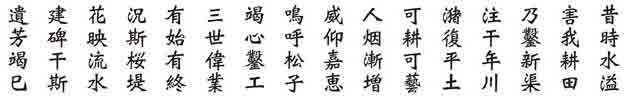 昔時水溢
害我耕田
乃鑿新渠
注干年川
潴復平土
可耕可藝
人烟漸増
威仰嘉恵
鳴呼松子
竭心鑿工
三世偉業
有始有終
况斯桜堤
花映流水
建碑干斯
遺芳竭巳